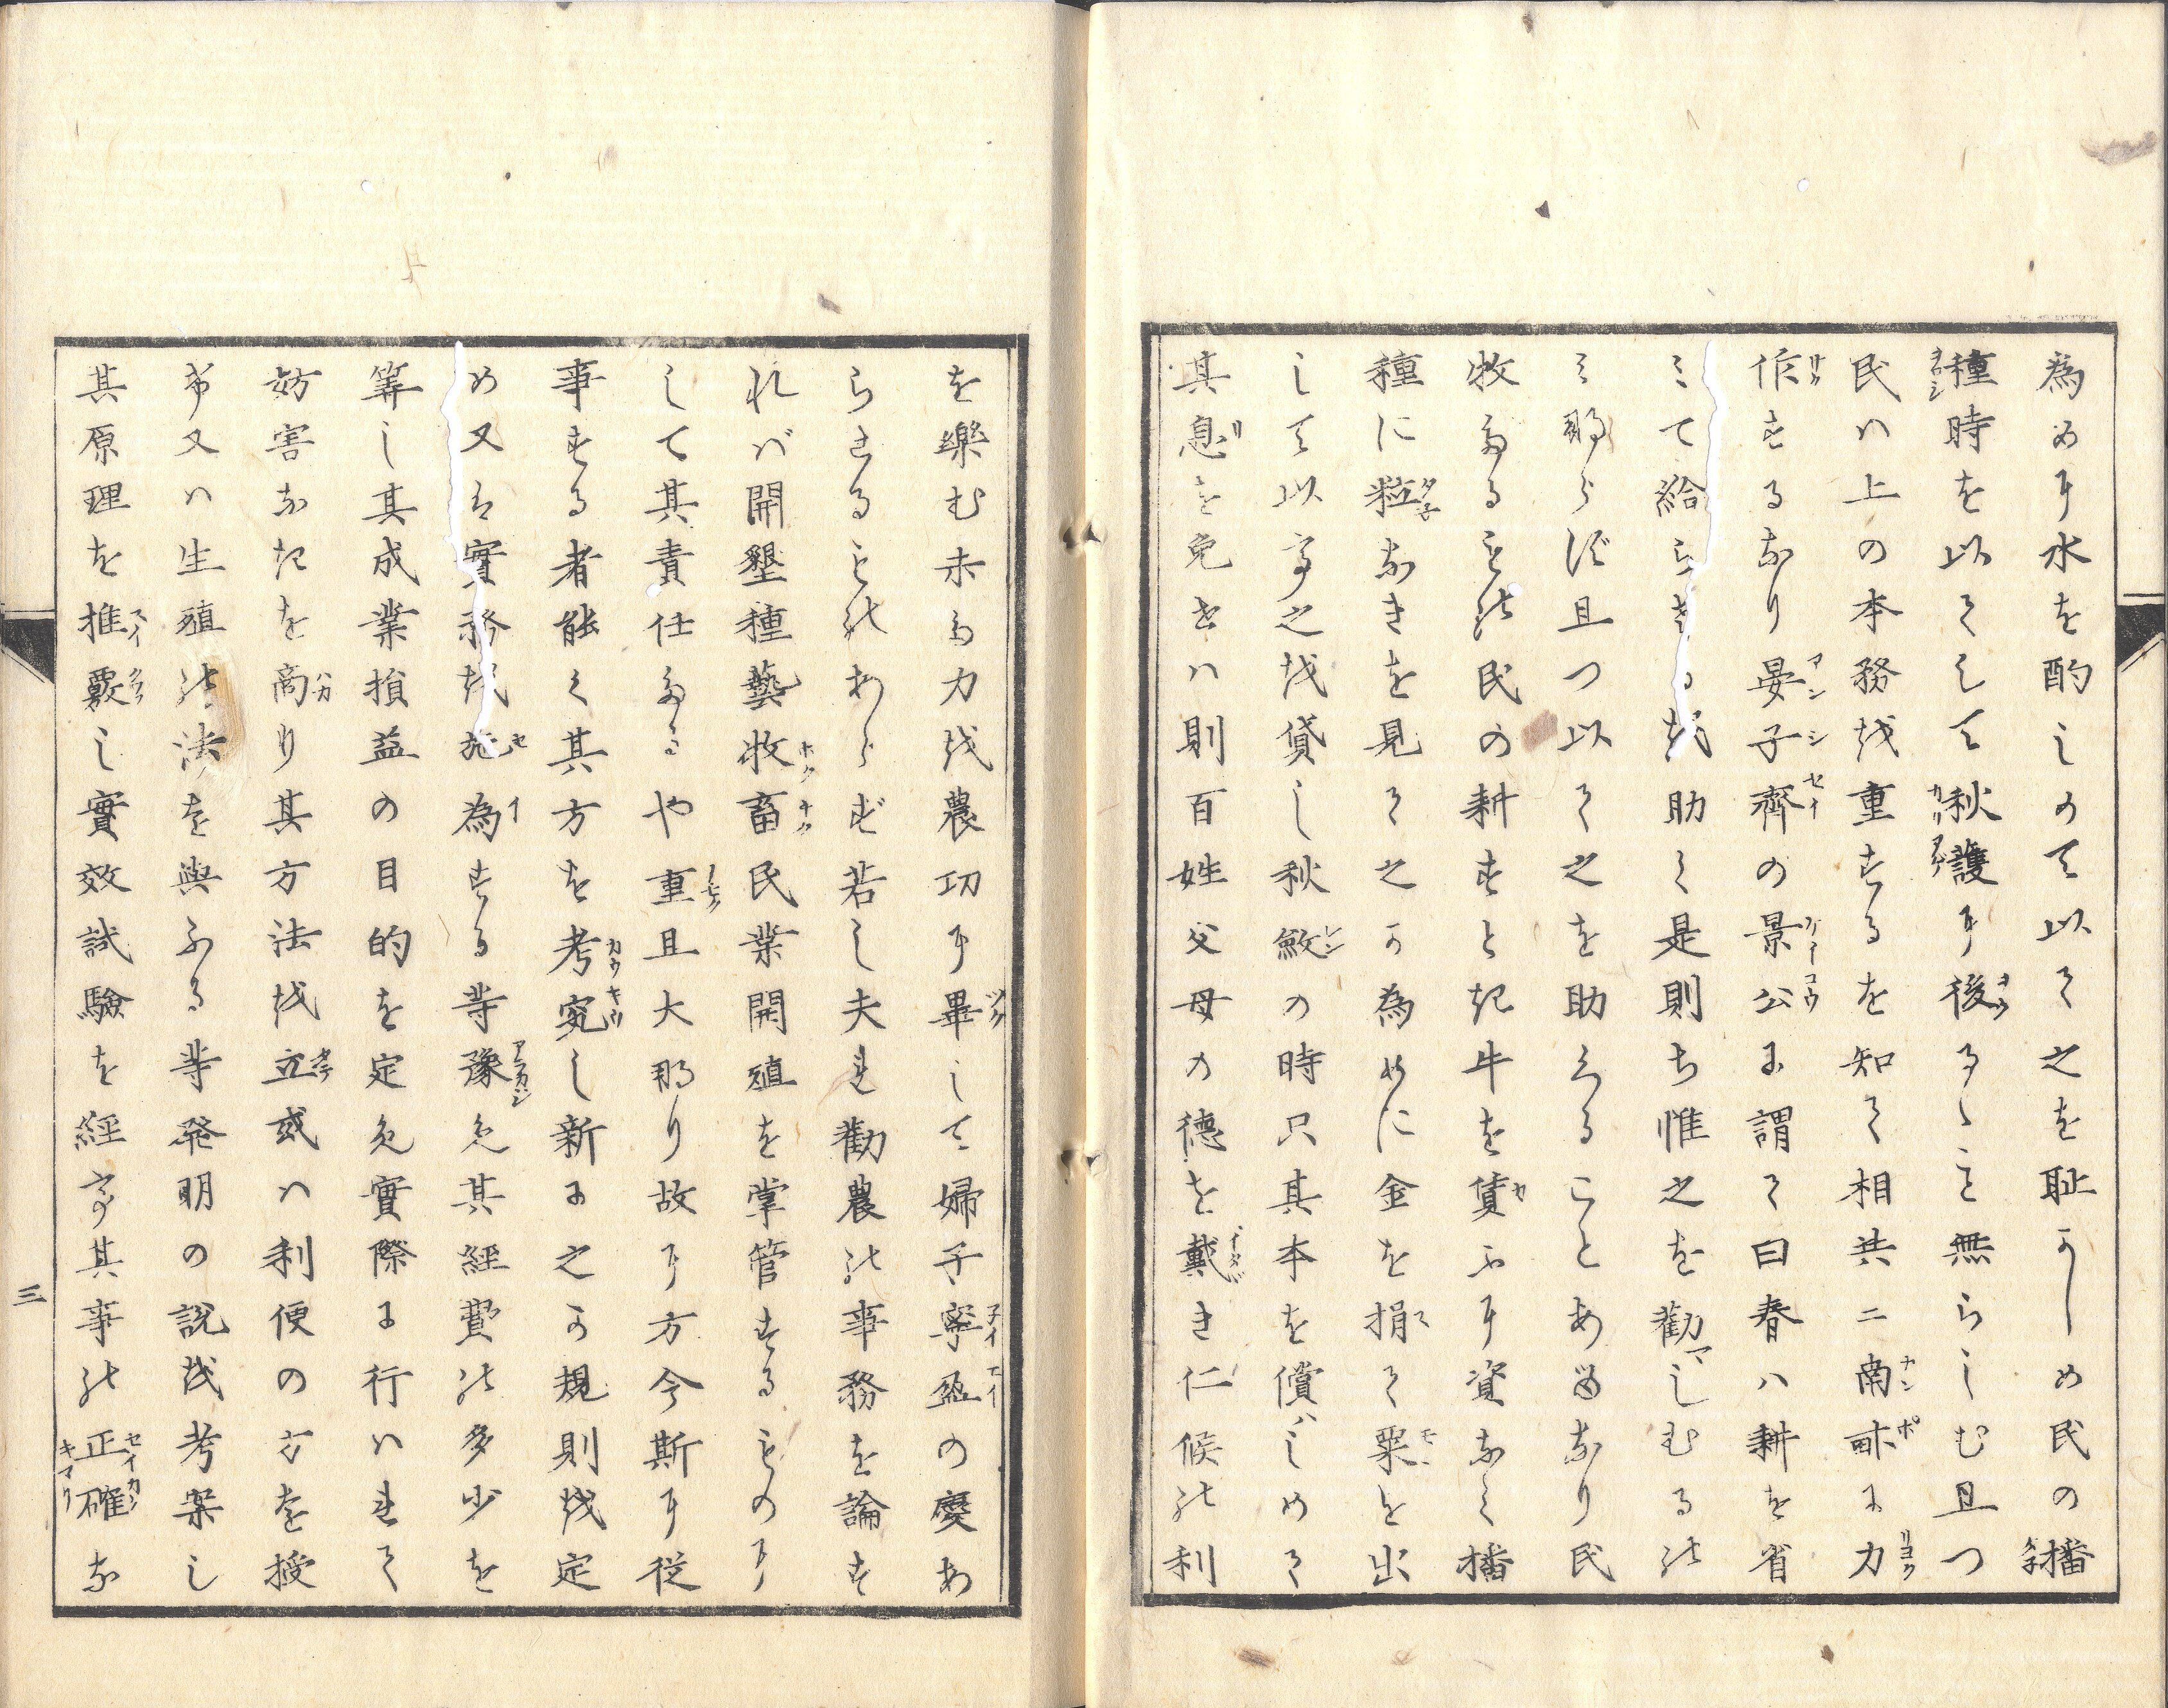 為めに水を酌しめて以て之を恥かしめ民の播
種時を以てして秋護に後るゝこと無らしむ且つ
民ハ上の本務を重するを知て相共ニ南畝に力
作するなり晏子齊の景公に謂て曰春ハ耕を省
ミて給らさるを助く是則ち惟之を勸しむるの
ミ那らず且つ以て之を助くることあるなり民
牧たるもの民の耕すとき牛を賃ふに資なく播
種に粒なきを見て之か為めに金を捐て粟を出
して以て之を貸し秋斂の時只其本を償ハしめて
其息を免せハ則百姓父母の德を戴き仁候の利
を樂む未た力を農功に畢して婦子寧盈の慶あ
らさるものあらず若し夫れ勸農の事務を論す
れバ開墾種藝牧畜民業開殖を掌管するものに
して其責任たるや重且大那り故に方今斯に従
事する者能く其方を考究し新に之か規則を定
め又は實務を施為する等豫め其經費の多少を
筭し其成業損益の目的を定め實際に行ハれて
妨害なきを商り其方法を立或ハ利便の方を授
け又ハ生殖の法を與ふる等発明の説を考案し
其原理を推覈し實效試驗を経て其事の正確な
三